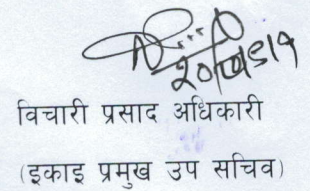 विचारी प्रसाद अधिकारी
(इकाइ प्रमुख उप सचिव)